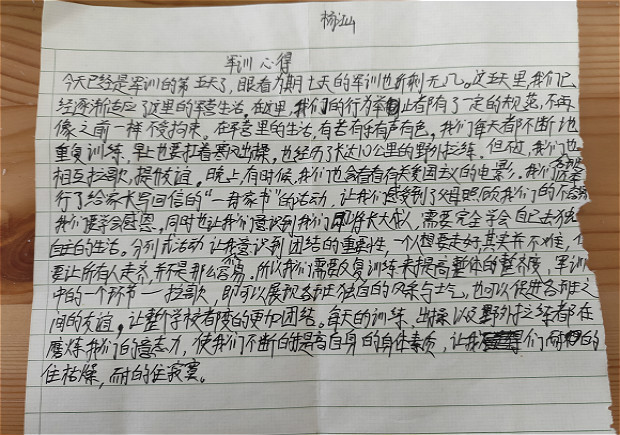 杨汕
军训心得
今天已经是军训的第五天了，眼看为期七天的军训也所剩无几。这五天里，我们已
经逐渐适应了这里的军营生活。在这里，我们的行为举止都有了一定的规范，不再
像之前一样不受拘束。在军营里的生活，有苦有乐有声有色。我们每天者都不断地
重复训练，早上也要打着寒风出操，也经历了长达10公里的野外拉练。但在，我们也
相互拉歌，提候谊。晚上，有时候，我们也会看看有关爱国主义的电影。我们还举
行了给家长写回信的“一封家书”的活动，让我们感受到了父母照顾我们的不容易
我们要学会感恩。同时也让我们意识到我们即将长大成人，需要完全学会自己去独
自主的生活。分列式活动让我意识到团结的重要性，一个人想要走好其实并不难，但
要让所有人走齐，并不是那么容易，所以我们需要反复训练来提高整体的整齐度，军训
中的一个环节一拉歌，即可以展现各班独自的风采与士气，也可以促进各班之
间的友谊。让整个学校者变的更加团结。每天的训练、出操以及野外拉练都在
磨炼我们的意志力，使我们不断的提高自身的身体素质，让我们耐的
住枯燥，耐的住寂寞。